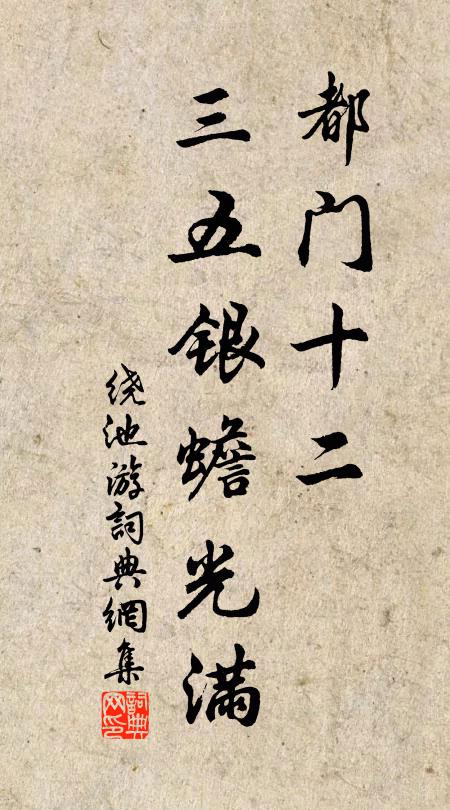 都门十二
三五银蟾光满
绕池游詞典網集
詞典
网印